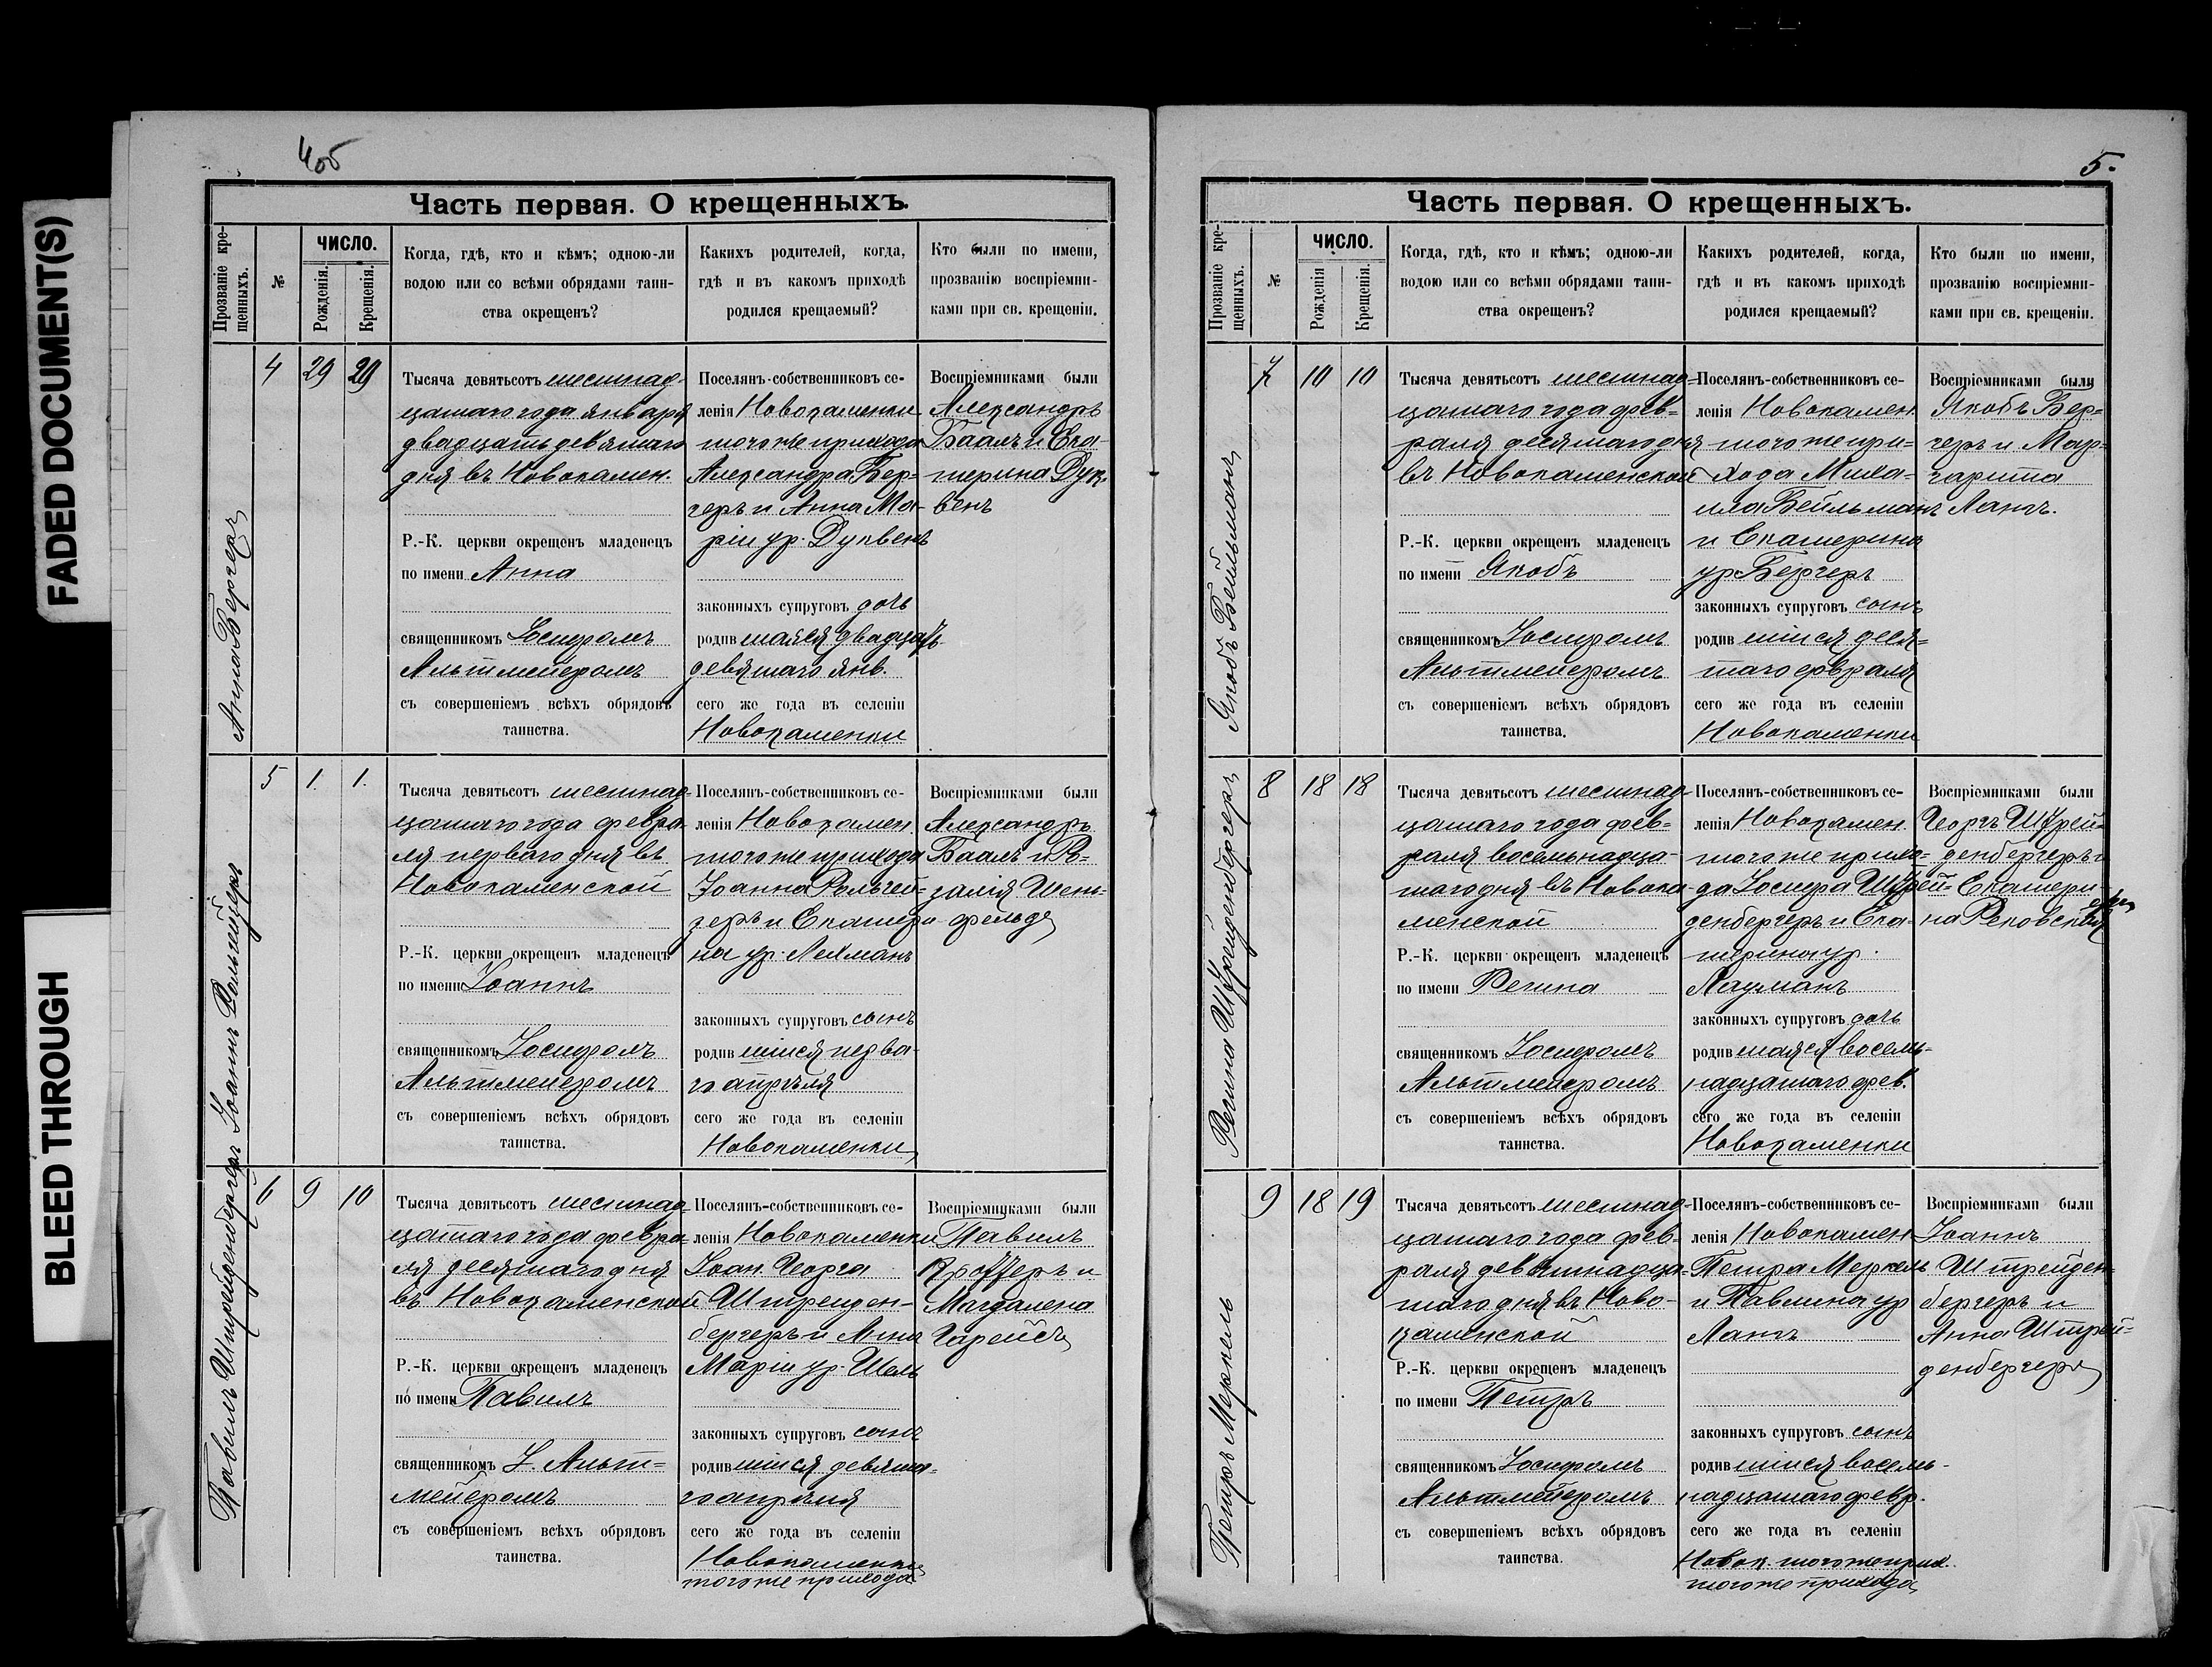 FADED DOCUMENT(S)
BLEED THROUGH
4об
Часть первая. О крещенныхъ.
Прозваніе кре-
щенныхъ.
№
ЧИСЛО.
Рожденія.
Крещенія.
Когда, гдѣ, кто и кѣмъ; одною-ли
водою или со всѣми обрядами таин-
ства окрещенъ?
Какихъ родителей, когда,
гдѣ и въ какомъ приходѣ
родился крещаемый?
Кто были по имени,
прозванію воспріемни-
ками при св. крещеніи.
Анна Бергеръ
4
29
29
Тысяча девятьсотъ шестнад-
цатаго года января
двадцать девятаго
дня въ Новокамен.
Р.-К. церкви окрещенъ младенецъ
по имени Анна
священникомъ Іосифомъ
Альтмейеромъ
съ совершеніемъ всѣхъ обрядовъ
таинства.
Поселянъ-собственниковъ се-
ленія Новокаменки
того же прихода
Александра Бер-
геръ и Анна Ма-
ріи ур. Дуквенъ
законныхъ супруговъ дочь
родившаяся двадцать
девятаго янв.
сего же года въ селеніи
Новокаменки
Воспріемниками были
Александръ
Баалъ и Ека-
терина Дук-
венъ
Іоаннъ Рольгейзеръ
5
1.
1.
Тысяча девятьсотъ шестнад-
цатаго года февра-
ля перваго дня въ
Новокаменской
Р.-К. церкви окрещенъ младенецъ
по имени Іоаннъ
священникомъ Іосифомъ
Альтмейеромъ
съ совершеніемъ всѣхъ обрядовъ
таинства.
Поселянъ-собственниковъ се-
ленія Новокамен.
того же прихода
Іоанна Рольгей-
зеръ и Екатери-
на ур. Лехманъ
законныхъ супруговъ сынъ
родившійся перва-
го апрѣля
сего же года въ селеніи
Новокаменки
Воспріемниками были
Александръ
Баалъ и Ро-
залія Шень-
фельдъ
Павилъ Штрейденбергеръ
6
9
10
Тысяча девятьсотъ шестнад-
цатаго года февра-
ля десятаго дня
въ Новокаменской
Р.-К. церкви окрещенъ младенецъ
по имени Павилъ
священникомъ І. Альт-
мейеромъ
съ совершеніемъ всѣхъ обрядовъ
таинства.
Поселянъ-собственниковъ се-
ленія Новокаменки
Іоан. Георга
Штрейден-
бергеръ и Анна
Маріи ур. Шель
законныхъ супруговъ сынъ
родившійся девята-
го апрѣля
сего же года въ селеніи
Новокаменки
того же прихода
Воспріемниками были
Павилъ
и
Магдалена
Гарейсъ
5.
Часть первая. О крещенныхъ.
Прозваніе кре-
щенныхъ.
№
ЧИСЛО.
Рожденія
Крещенія.
Когда, гдѣ, кто и кѣмъ; одною-ли
водою или со всѣми обрядами таин-
ства окрещенъ?
Какихъ родителей, когда,
гдѣ и въ какомъ приходѣ
родился крещаемый?
Кто были по имени,
прозванію воспріемни-
ками при св. крещеніи.
Якобъ Вейльманъ
7
10
10
Тысяча девятьсотъ шестнад-
цатаго года фев-
раля десятаго дня
въ Новокаменской
Р.-К. церкви окрещенъ младенецъ
по имени Якобъ
священникомъ Іосифомъ
Альтмейеромъ
съ совершеніемъ всѣхъ обрядовъ
таинства.
Поселянъ-собственниковъ се-
ленія Новокамен.
того же при-
хода Миха-
ила Вейльманъ
и Екатерина
ур Бергеръ
законныхъ супруговъ сынъ
родившійся деся-
таго февраля
сего же года въ селеніи
Новокаменки
Воспріемниками были
Якобъ Бер-
геръ и Мар-
гарита
Лангъ.
Регина Штрейденбергеръ
8
18
18
Тысяча девятьсотъ шестнад-
цатаго года фев-
раля восемьнадца-
таго дня въ Новока-
менской
Р.-К. церкви окрещенъ младенецъ
по имени Регина
священникомъ Іосифомъ
Альтмейеромъ
съ совершеніемъ всѣхъ обрядовъ
таинства.
Поселянъ-собственниковъ се-
ленія Новокамен.
того же прихо-
да Іосифа Штрей-
денбергеръ и Ека-
терина ур.
Лауманъ
законныхъ супруговъ дочь
родившаяся восемь-
надцатаго фев.
сего же года въ селеніи
Новокаменки
Воспріемниками были
Георгъ Штрей-
денбергеръ и
Екатери-
на Рековская
Петръ Меркель
9
18
19
Тысяча девятьсотъ шестнад-
цатаго года фев-
раля девятнадца-
таго дня въ Ново-
каменской
Р.-К. церкви окрещенъ младенецъ
по имени Петръ
священникомъ Іосифомъ
Альтмейеромъ
съ совершеніемъ всѣхъ обрядовъ
таинства.
Поселянъ-собственниковъ се-
ленія Новокамен
Петра Меркель
и Павлина ур
Лангъ
законныхъ супруговъ сынъ
родившійся восемь-
надцатаго февр.
сего же года въ селеніи
Новок. того же прих.
того же прихода
Воспріемниками были
Іоаннъ
Штрейден-
бергеръ и
Анна Штрей-
денбергеръ